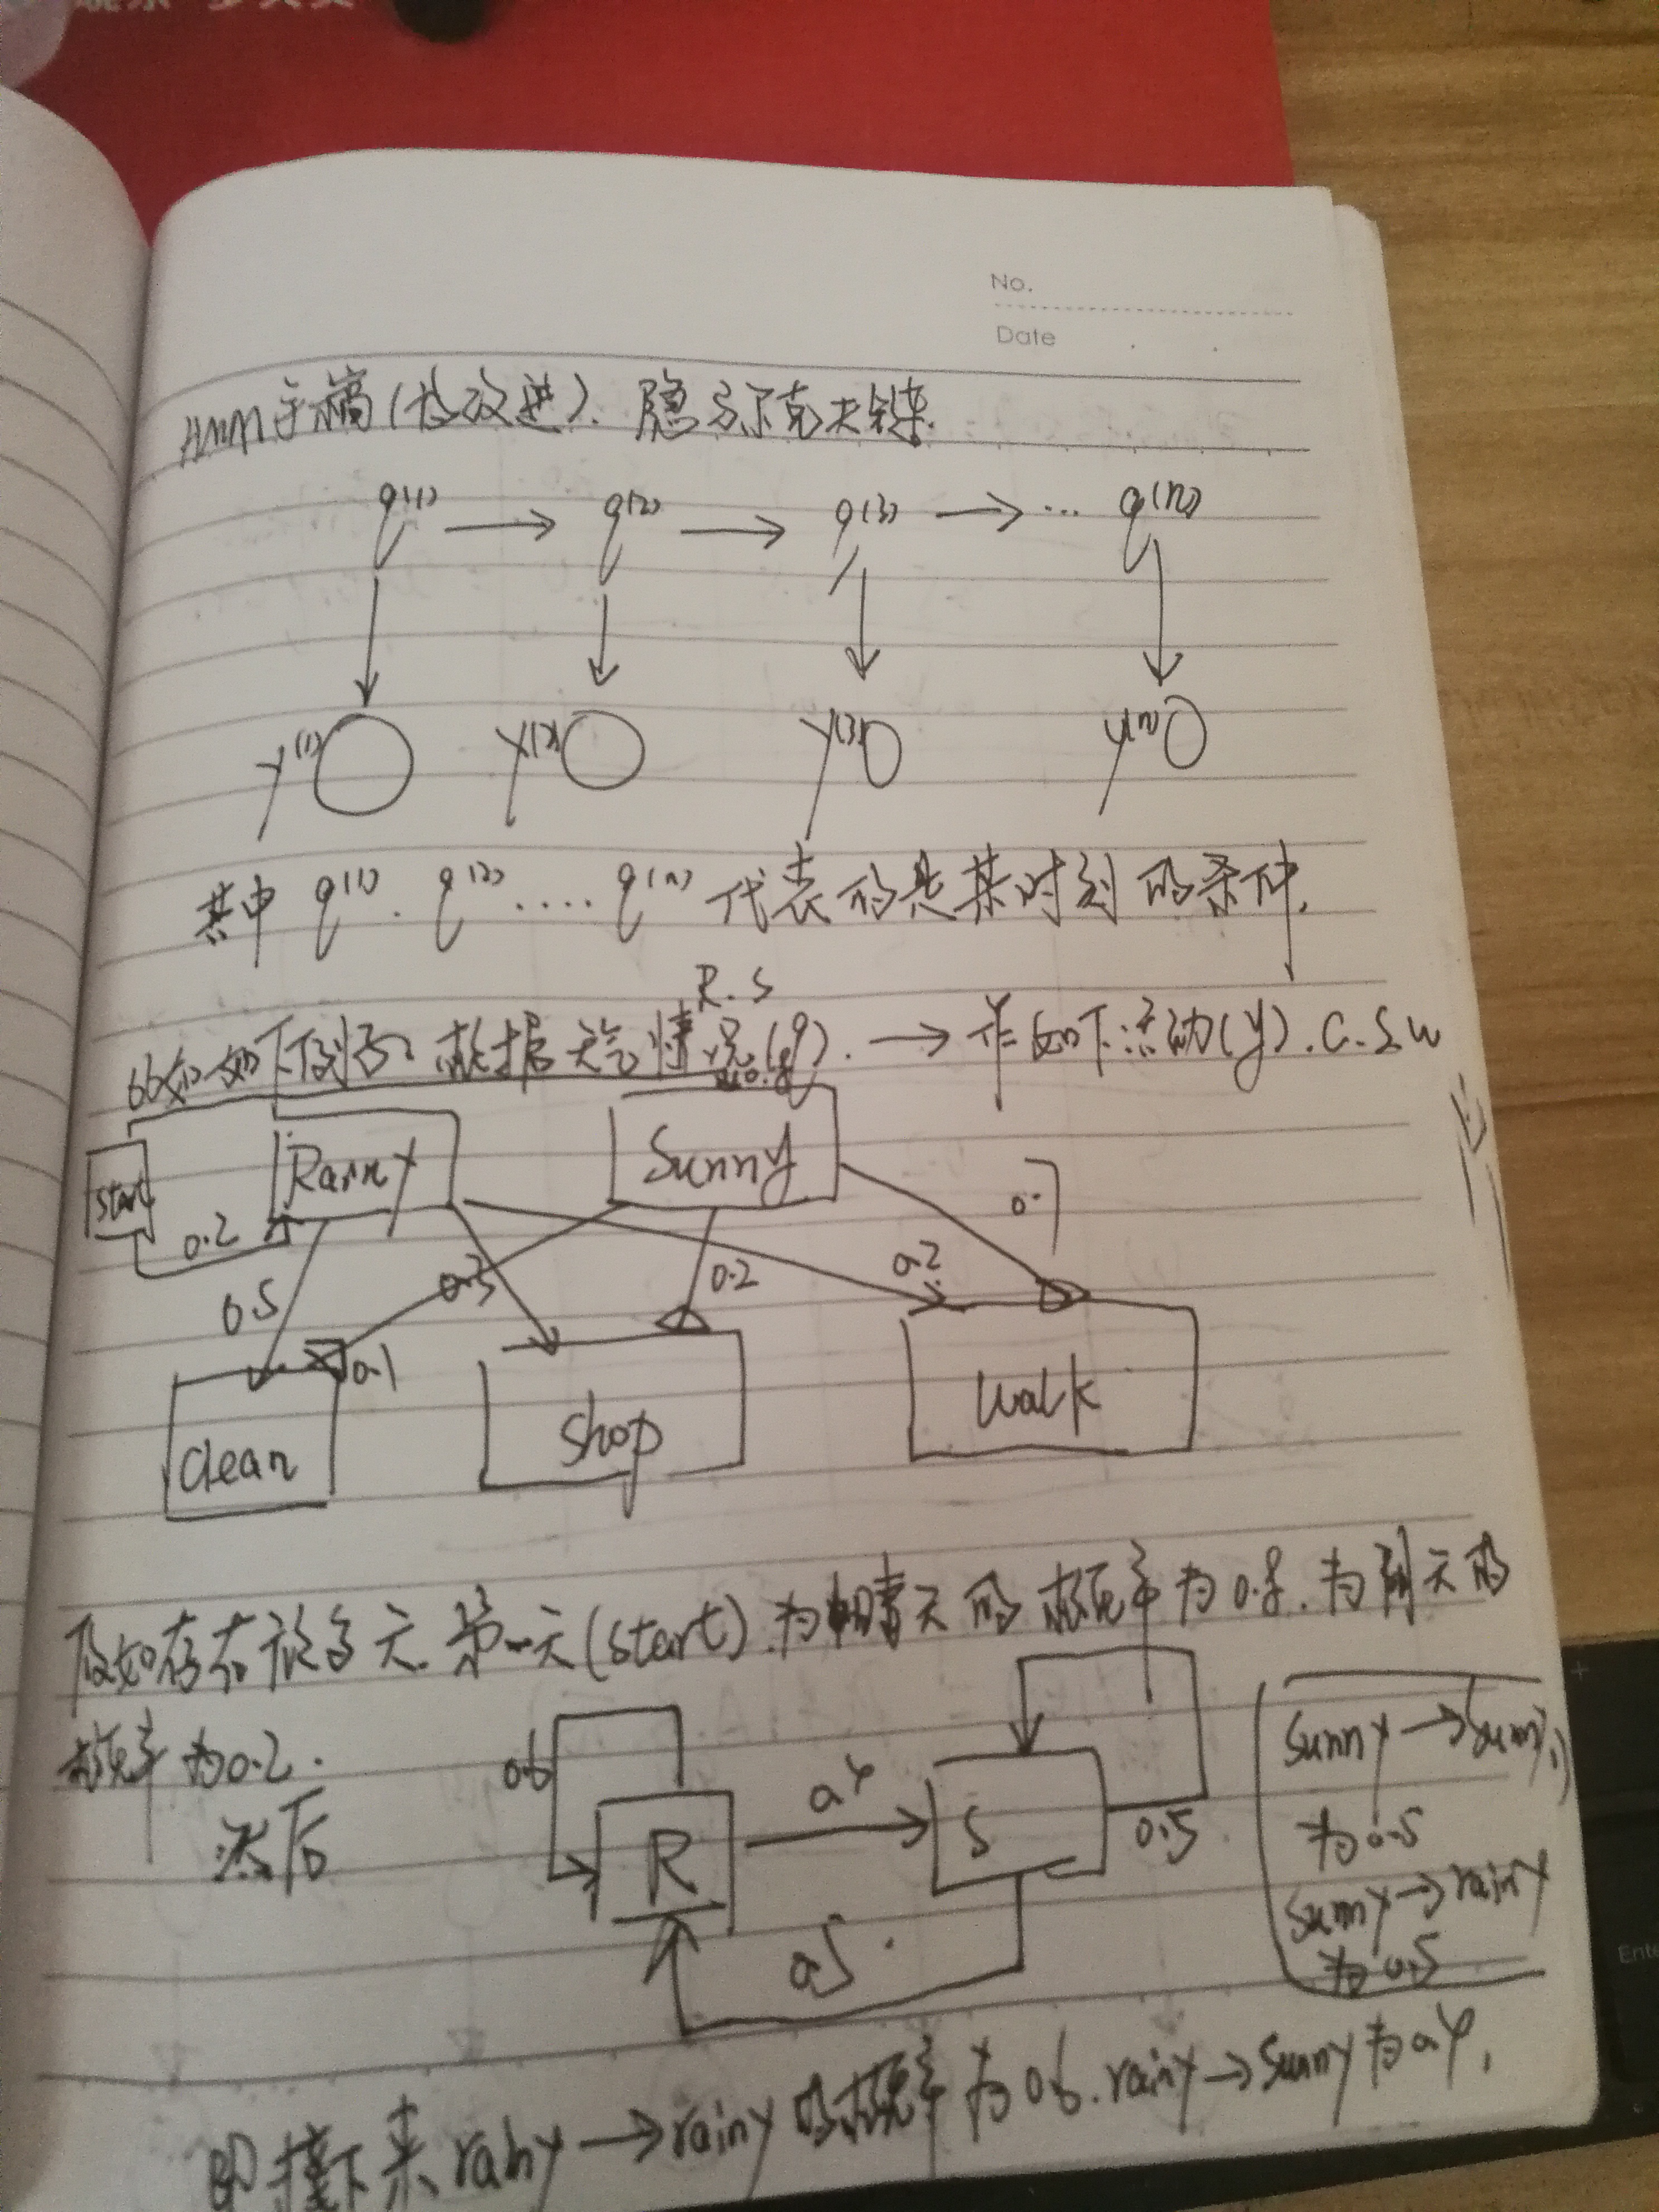 No.
Date
HMM手稿(待改进). 隐马尔克夫链.
q(1) → q(2) → q(3) → ... q(n)
y(1) y(2) y(3) y(n)
其中 q(1). q(2) .... q(n) 代表的是某时刻的条件.
R. S
比如如下例子: 根据天气情况(q). → 作如下活动(y). C. S. W
0.8
start Rainy Sunny
0.2 0.7
0.5 0.3 0.2 0.2
0.1
clean shop walk
假如存在许多天. 第一天(start).为晴天的概率为0.8. 为雨天的
概率为0.2.
然后
0.6 R 0.4 S 0.5
0.5
sunny → sunny
为0.5
sunny → rainy
为0.5
即接下来 rainy → rainy 的概率为0.6. rainy → sunny 为0.4.
Enter